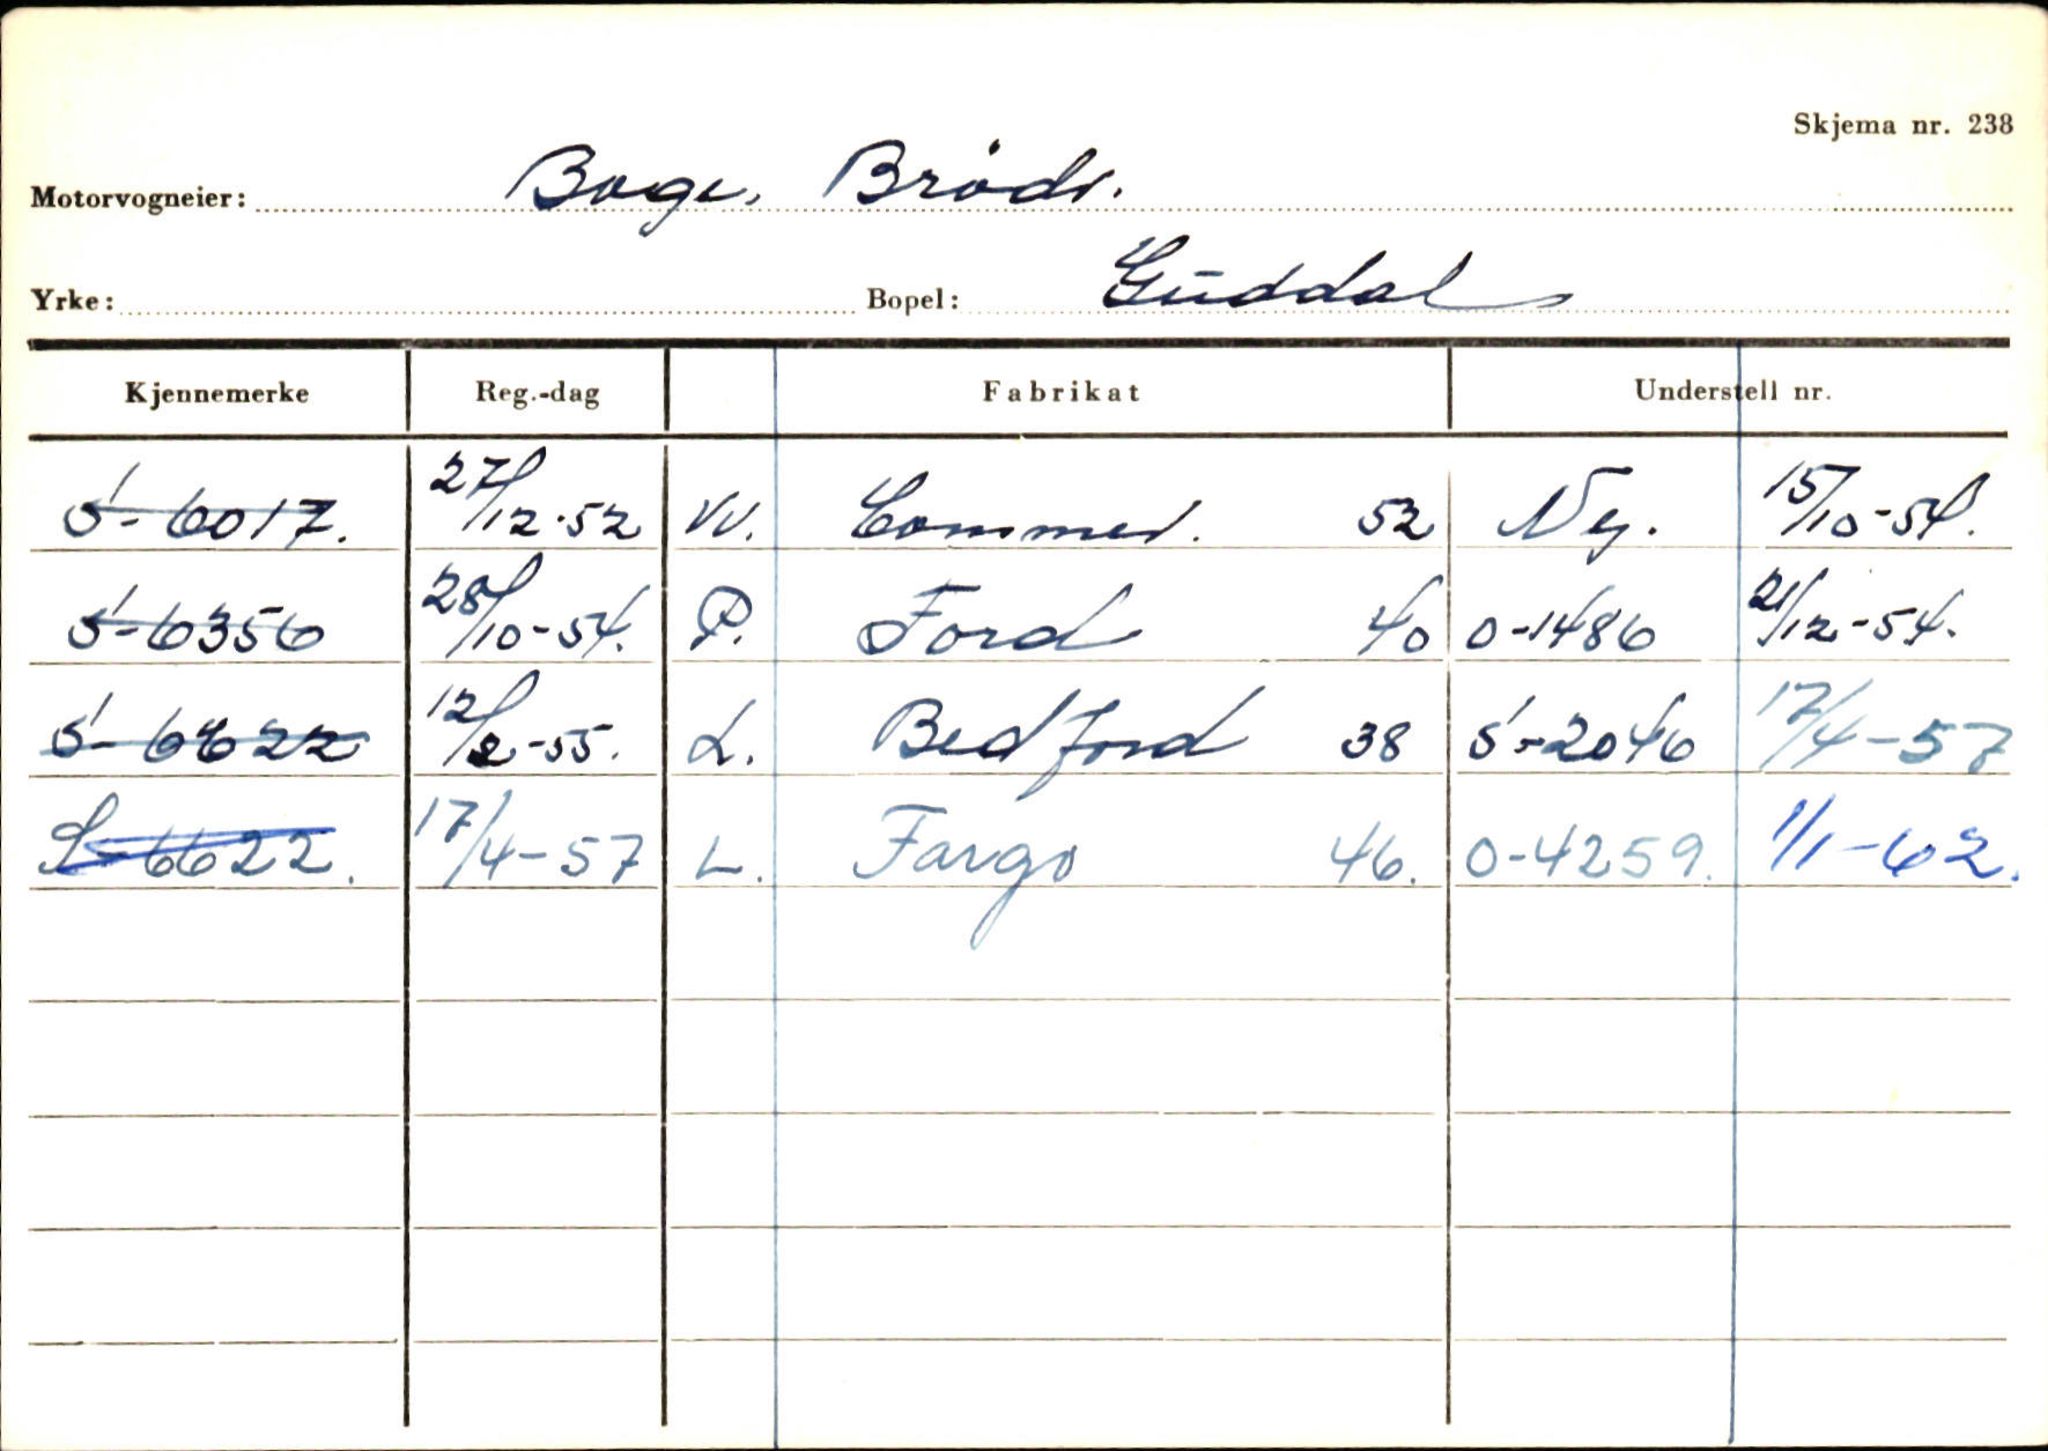 Skjema nr. 238
Motorvogneier: Boge, Brödr.
Yrke: Bopel: Guddal
Kjennemerke Reg.-dag Fabrikat Understell nr.
S-6017. 27/12-52 W. Commer. 52 Ny. 15/10-54.
S-6356 28/10-54. P. Ford 40 O-1486 21/12-54.
S-6622 12/2-55. L. Bedford 38 S-2046 17/4-57
S-6622. 17/4-57 L. Fargo 46. O-4259. 1/1-62.